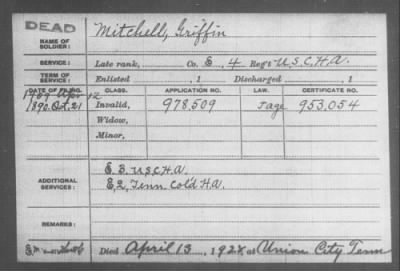 DEAD
NAME OF SOLDIER: Mitchell, Griffin
SERVICE: Late rank, Co. E, 4 Reg't U.S.C.H.A.
TERM OF SERVICE: Enlisted , 1 Discharged , 1
DATE OF FILING. CLASS. APPLICATION NO. LAW. CERTIFICATE NO.
Apr 12
1890. Oct. 21 Invalid, 978,509 953,054
Widow,
Minor,
ADDITIONAL SERVICES: E 3 U.S.C.H.A.
E, 2, Tenn Col'd H.A.
REMARKS:
Died April 13, 1924, at Union City Tenn